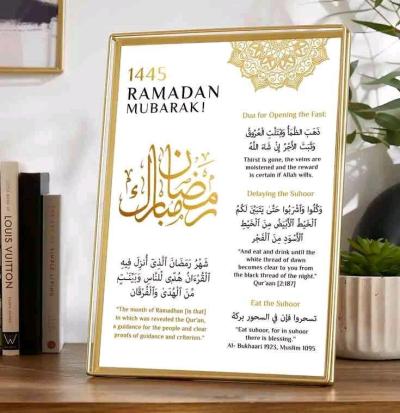 1445
RAMADAN
MUBARAK!
رمضان
مبارك
شَهْرُ رَمَضَانَ الَّذِي أُنْزِلَ فِيهِ
الْقُرْءَانُ هُدًى لِلنَّاسِ وَبَيِّنَتٍ
مِنَ الْهُدَىٰ وَالْفُرْقَانِ
"The month of Ramadhan [is that]
in which was revealed the Qur'an,
a guidance for the people and clear
proofs of guidance and criterion."
Dua for Opening the Fast:
ذَهَبَ الظَّمَأُ وَابْتَلَّتِ الْعُرُوْقُ
وَثَبَتَ الْأَجْرُ إِنْ شَاءَ اللَّهُ
Thirst is gone, the veins are
moistened and the reward
is certain if Allah wills.
Delaying the Suhoor
وَكُلُوا وَاشْرَبُوا حَتَّىٰ يَتَبَيَّنَ لَكُمُ
الْخَيْطُ الْأَبْيَضُ مِنَ الْخَيْطِ
الْأَسْوَدِ مِنَ الْفَجْرِ
"And eat and drink until the
white thread of dawn
becomes clear to you from
the black thread of the night."
Qur'aan [2:187]
Eat the Suhoor
تسحروا فإن في السحور بركة
"Eat suhoor, for in suhoor
there is blessing."
Al- Bukhaari 1923, Muslim 1095
LOUIS VUITTON